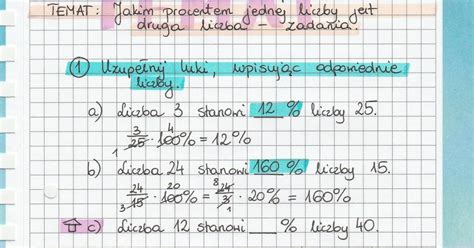 TEMAT: Jakim procentem jednej liczby jest
druga liczba - zadania.
① Uzupełnij luki, wpisując odpowiednie
liczby.
a) Liczba 3 stanowi 12 % liczby 25.
3/25 · 100% = 12%
1 4
b) Liczba 24 stanowi 160 % liczby 15.
24/15 · 100% = 24/3 · 20% = 160%
3 20 8 1
c) Liczba 12 stanowi __ % liczby 40.